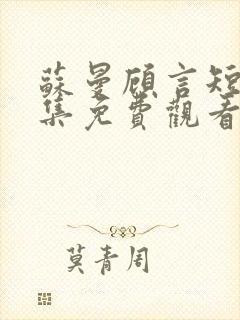 蘇曼顧言短
集免費觀看
莫青周